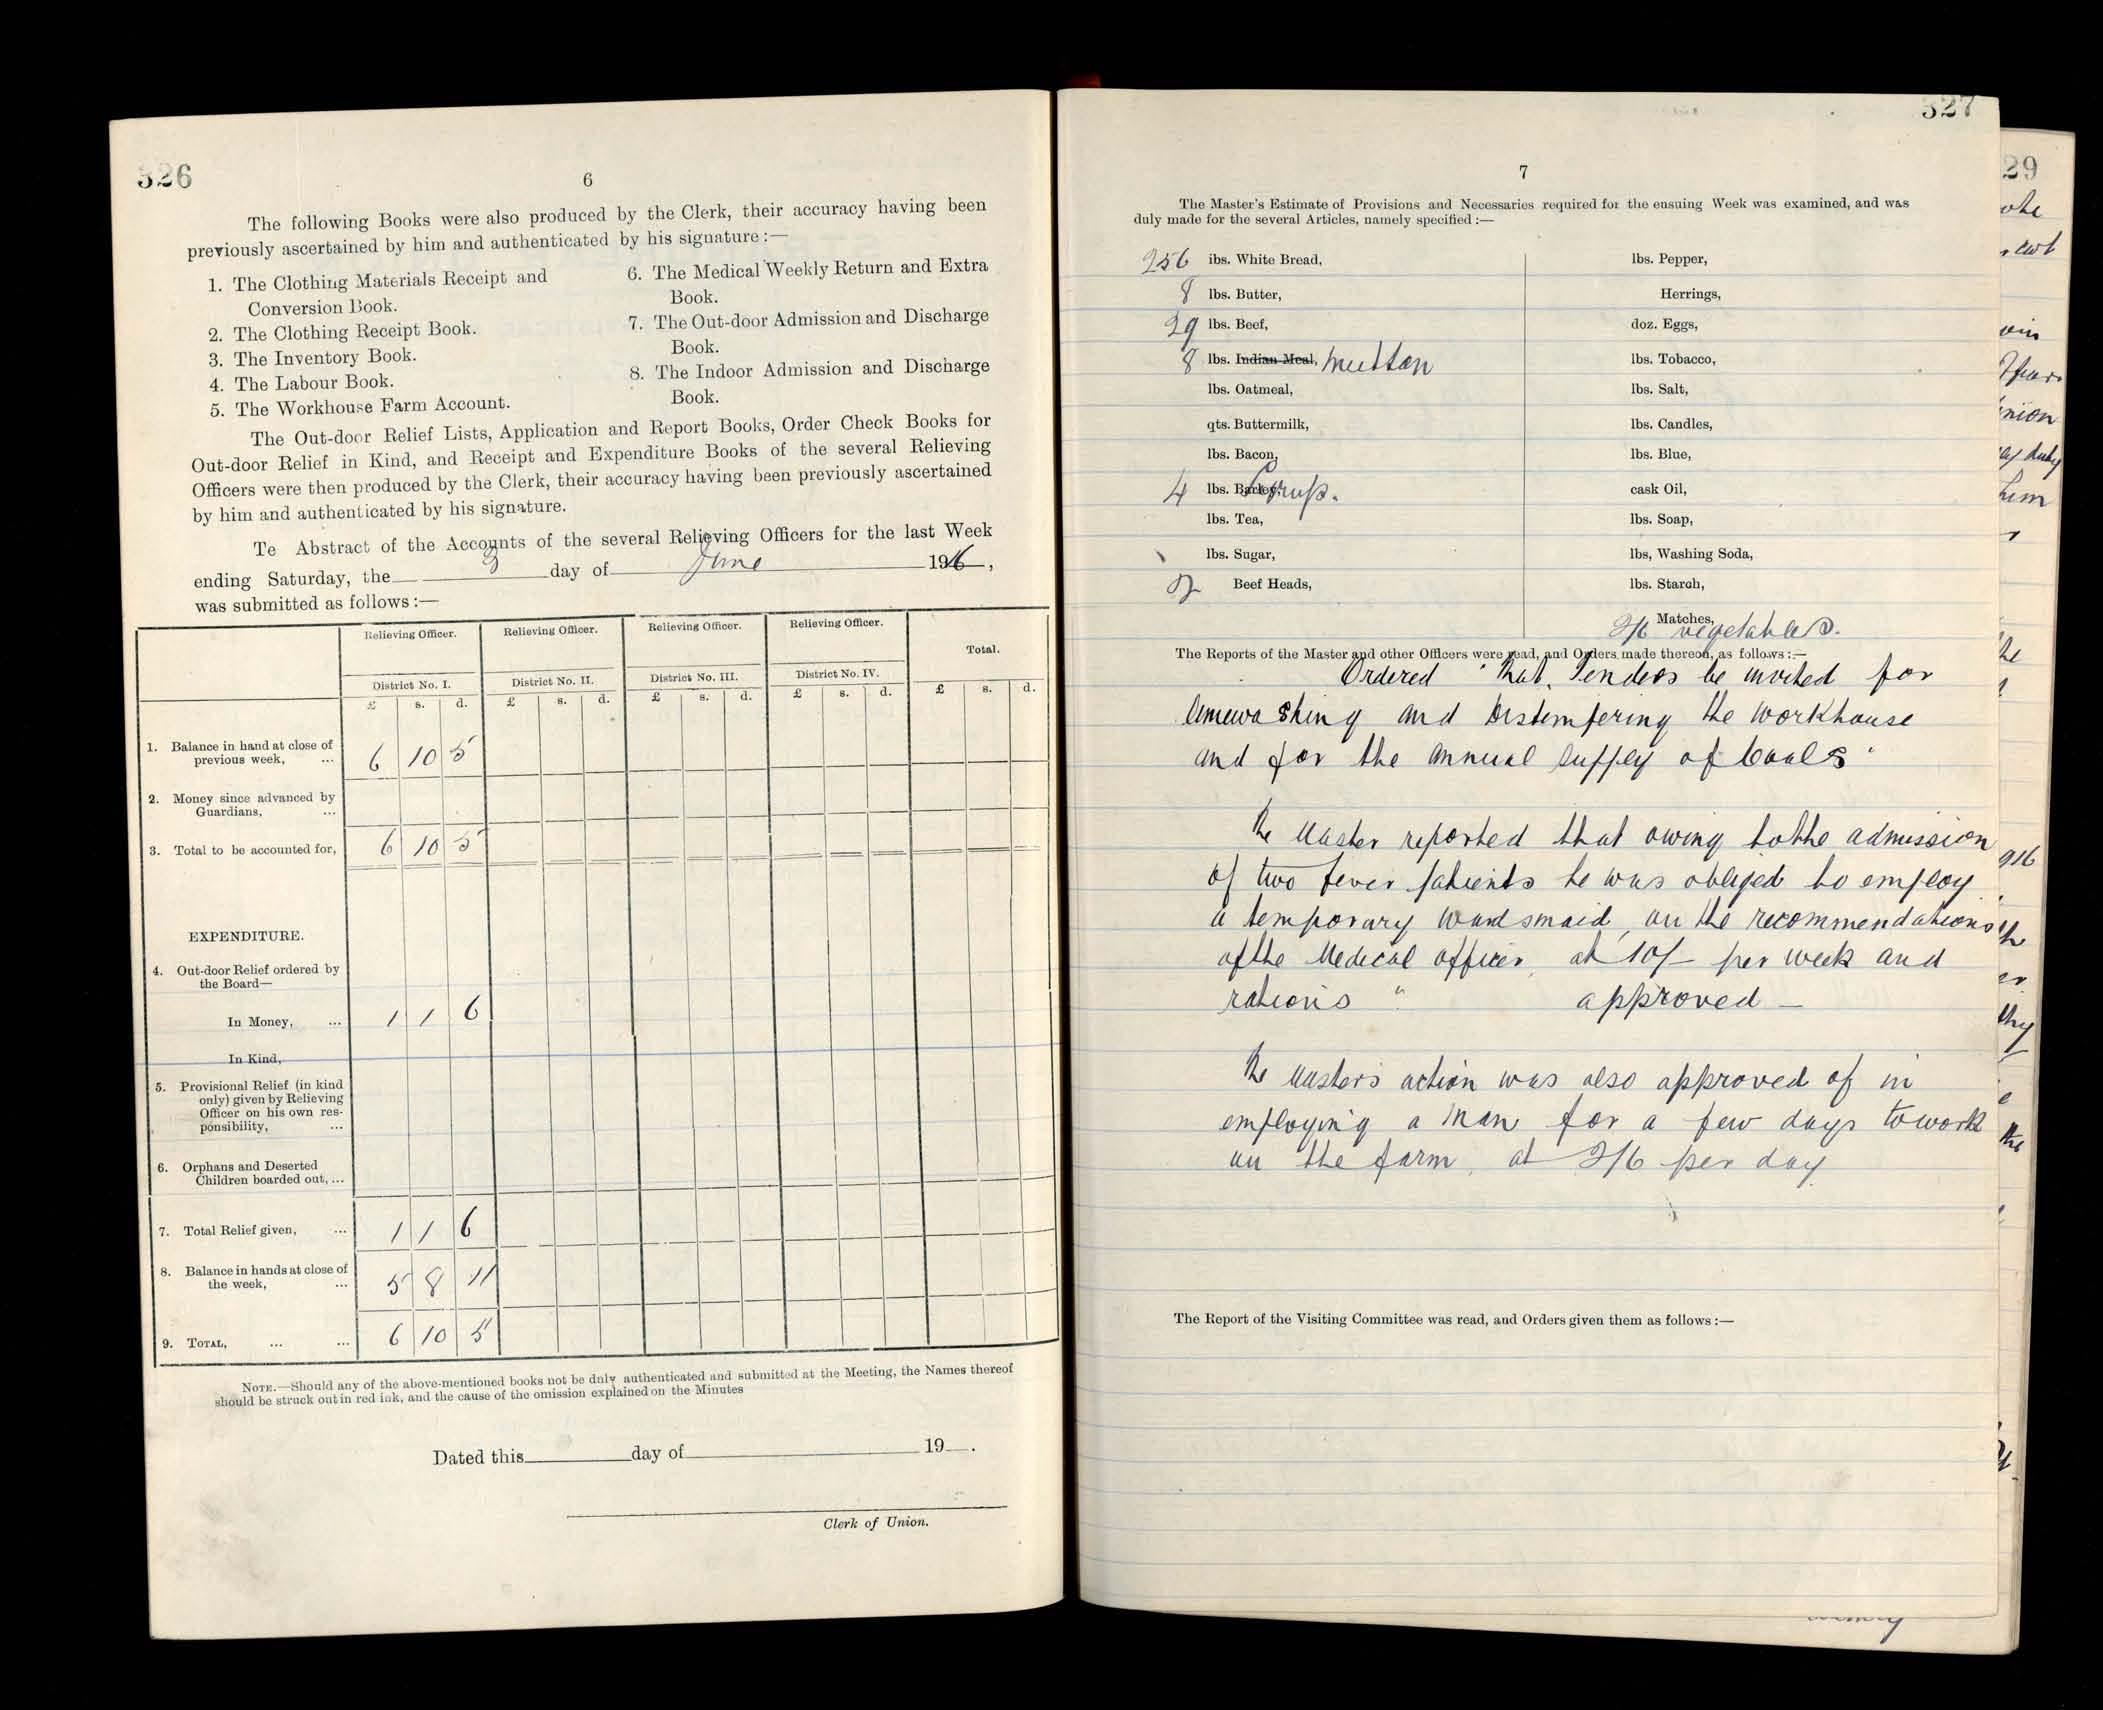 326
6
The following Books were also produced by the Clerk, their accuracy having been
previously ascertained by him and authenticated by his signature :—
1. The Clothing Materials Receipt and
Conversion Book.
2. The Clothing Receipt Book.
3. The Inventory Book.
4. The Labour Book.
5. The Workhouse Farm Account.
6. The Medical Weekly Return and Extra
Book.
7. The Out-door Admission and Discharge
Book.
8. The Indoor Admission and Discharge
Book.
The Out-door Relief Lists, Application and Report Books, Order Check Books for
Out-door Relief in Kind, and Receipt and Expenditure Books of the several Relieving
Officers were then produced by the Clerk, their accuracy having been previously ascertained
by him and authenticated by his signature.
Te Abstract of the Accounts of the several Relieving Officers for the last Week
ending Saturday, the 3 day of June 1916,
was submitted as follows :—
Relieving Officer. Relieving Officer. Relieving Officer. Relieving Officer. Total.
District No. I. District No. II. District No. III. District No. IV.
£ s. d. £ s. d. £ s. d. £ s. d. £ s. d.
1. Balance in hand at close of
previous week, ... 6 10 5
2. Money since advanced by
Guardians, ...
3. Total to be accounted for, 6 10 5
EXPENDITURE.
4. Out-door Relief ordered by
the Board—
In Money, ... 1 1 6
In Kind,
5. Provisional Relief (in kind
only) given by Relieving
Officer on his own res-
ponsibility, ...
6. Orphans and Deserted
Children boarded out, ...
7. Total Relief given, ... 1 1 6
8. Balance in hands at close of
the week, ... 5 8 11
9. TOTAL, ... ... 6 10 5
NOTE.—Should any of the above-mentioned books not be duly authenticated and submitted at the Meeting, the Names thereof
should be struck out in red ink, and the cause of the omission explained on the Minutes
Dated this day of 19 .
Clerk of Union.
327
7
The Master's Estimate of Provisions and Necessaries required for the ensuing Week was examined, and was
duly made for the several Articles, namely specified :—
256 lbs. White Bread,
8 lbs. Butter,
29 lbs. Beef,
8 lbs. Indian Meal, Mutton
lbs. Oatmeal,
qts. Buttermilk,
lbs. Bacon,
4 lbs. Barley, Syrup.
lbs. Tea,
lbs. Sugar,
2 Beef Heads,
lbs. Pepper,
Herrings,
doz. Eggs,
lbs. Tobacco,
lbs. Salt,
lbs. Candles,
lbs. Blue,
cask Oil,
lbs. Soap,
lbs, Washing Soda,
lbs. Starch,
Matches,
2/6 vegetables.
The Reports of the Master and other Officers were read, and Orders made thereon, as follows :—
Ordered "That Tenders be invited for
limewashing and Distempering the workhouse
and for the annual supply of Coals"
The Master reported that owing to the admission
of two fever patients he was obliged to employ
a temporary wardsmaid, on the recommendations
of the Medical officer at 10/- per week and
rations " approved —
The Masters action was also approved of in
employing a man for a few days to work
on the farm, at 2/6 per day
The Report of the Visiting Committee was read, and Orders given them as follows :—
29